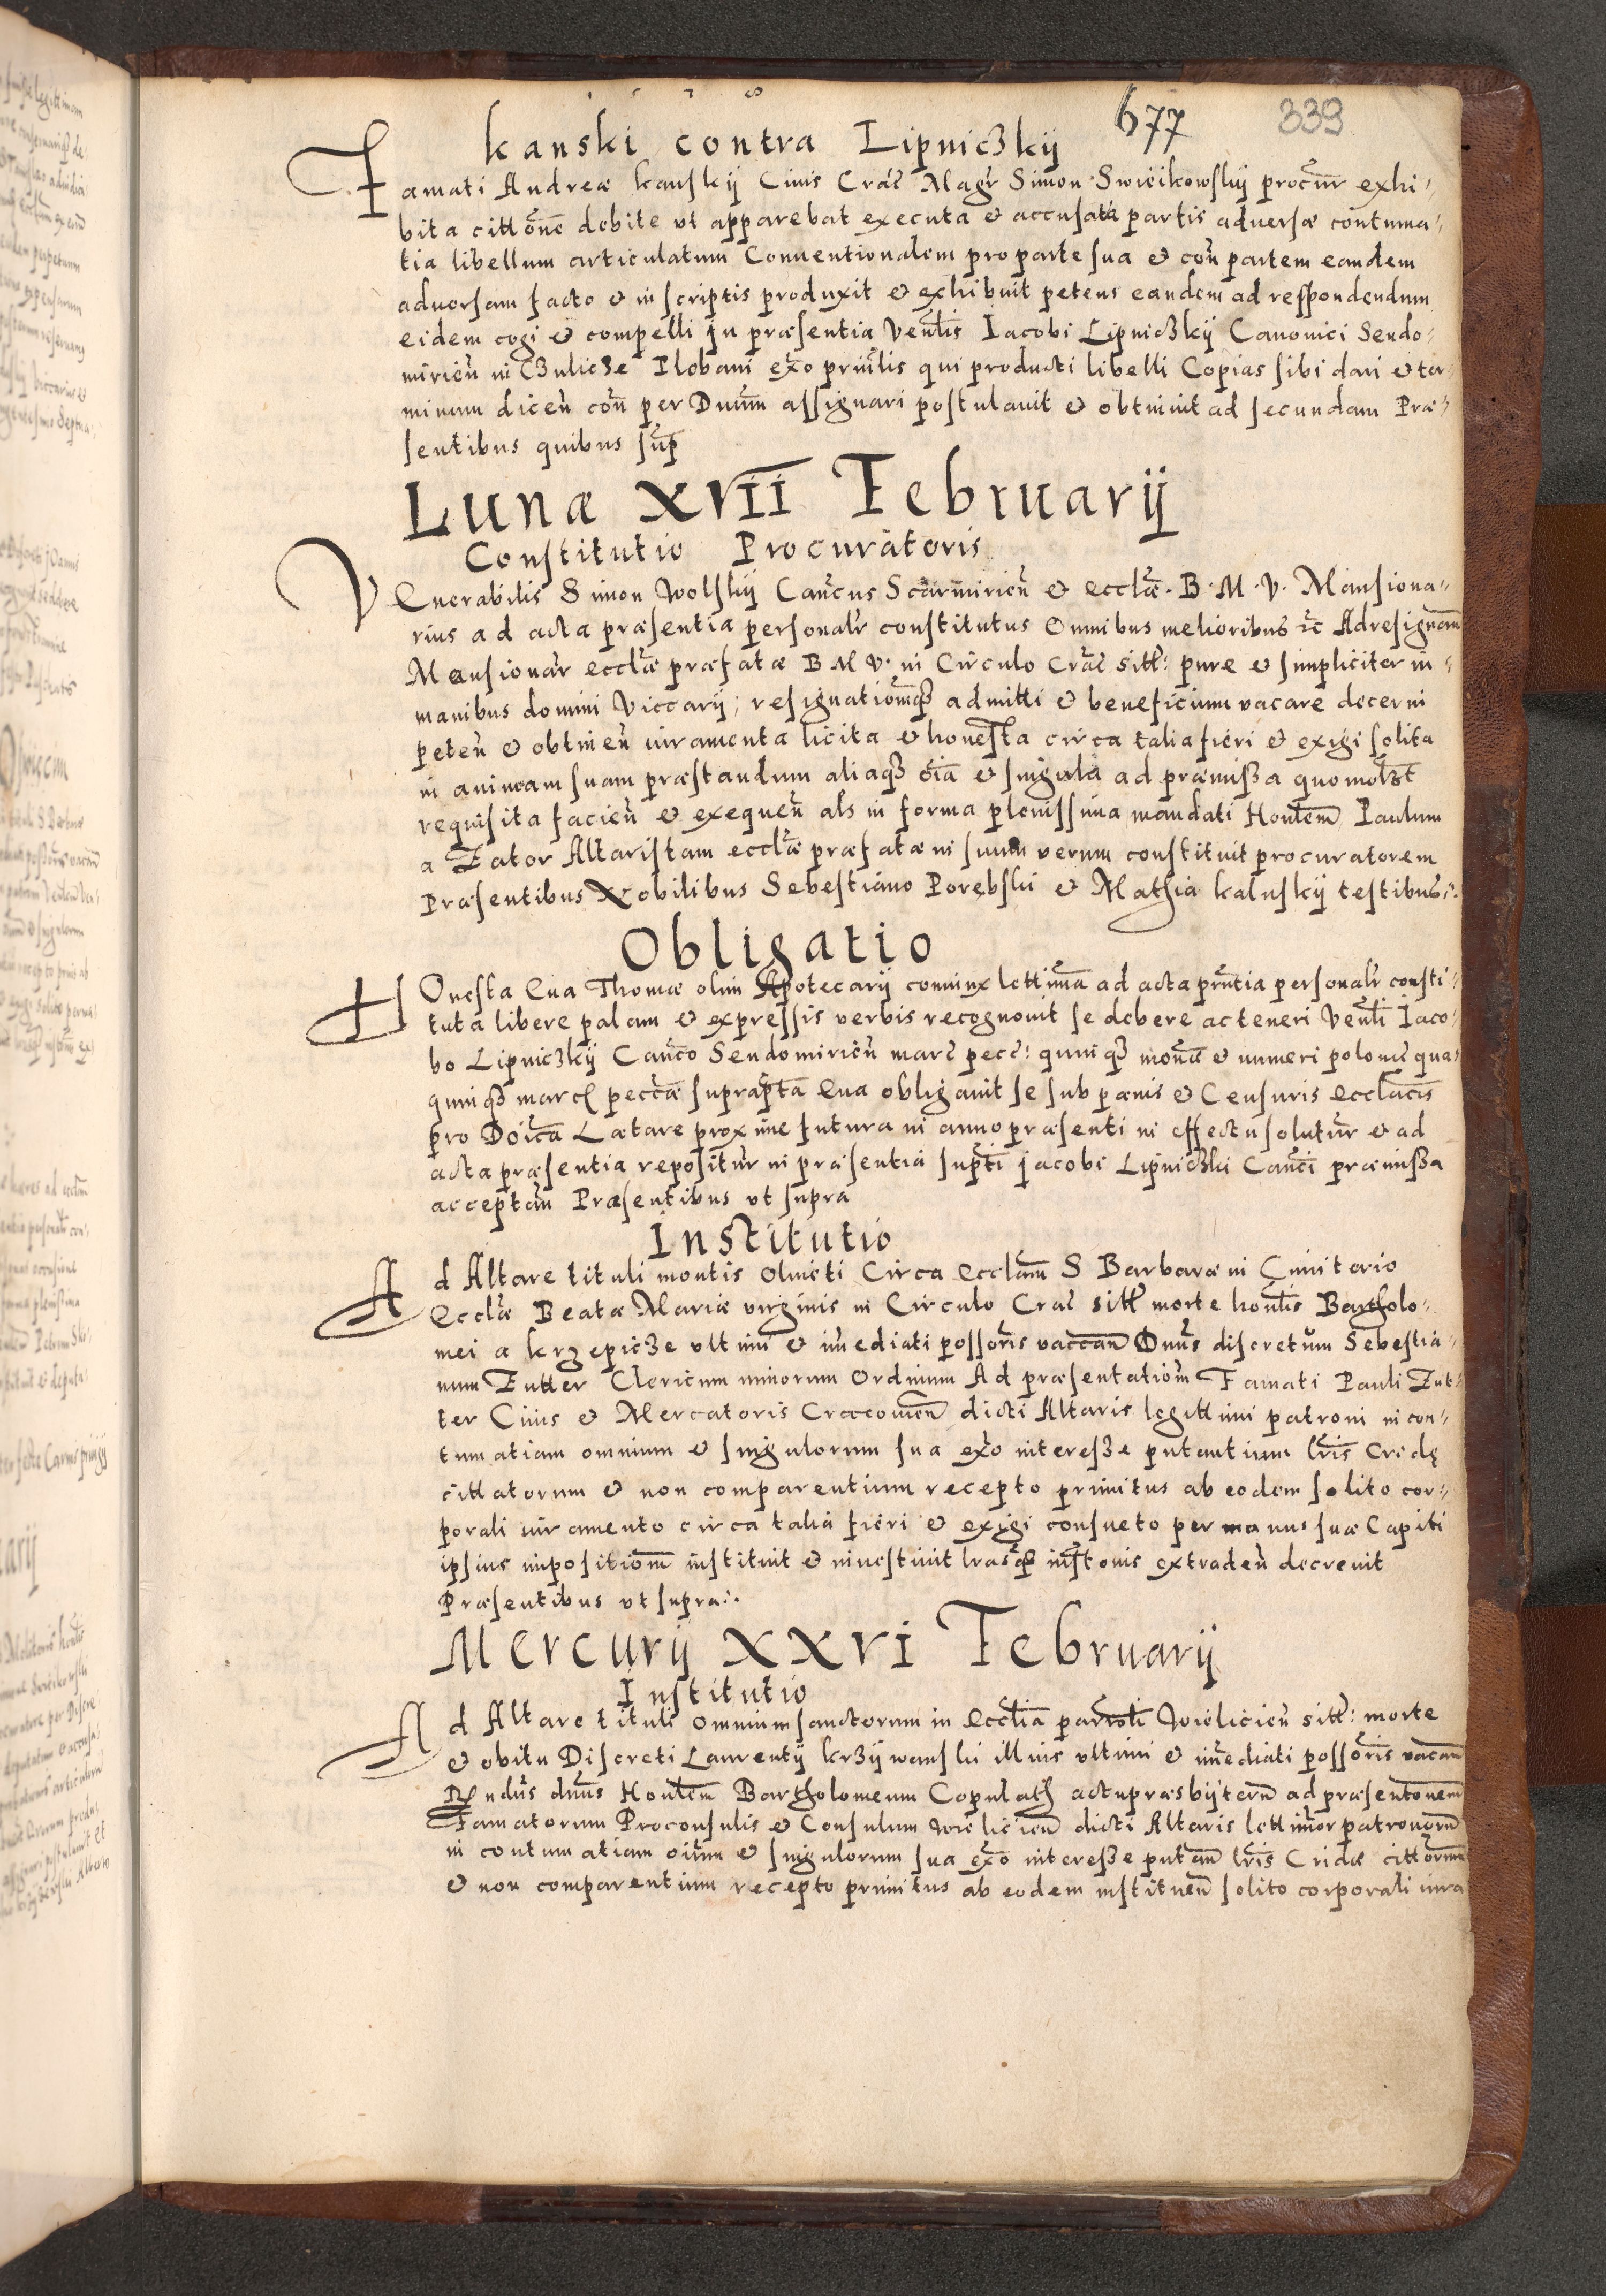 677 339
kanski contra Lipnic3kij
Famati Andreæ kanskij Ciuis Crac̃ Magr̃ Simon Swieikowskij procur̃ exhi-
bita citt͠onẽ debite vt apparebat executa & accusata partis aduersæ contuma-
tia libellum articulatum Conuentionalem pro parte sua & coñ partem eandem
aduersam facto & in scriptis produxit & exhibuit petens eandem ad respondendum
eidem cogi & compelli in præsentia Ven̄lis Iacobi Lipnic3kij Canonici Sendo-
mirieñ in C3ulic3e Plobani ex͠o prin̄lis qui producti libelli Copias sibi dari & ter-
minum diceñ coñ per Dnũm assignari postulauit & obtinuit ad secundam Præ-
sentibus quibus sup̃
Lunæ XVII Februarij
Constitutio Procuratoris
VEnerabilis Simon Wolskij Can̄cus Scarmirieñ & eccl̃æ. B. M. V. Mansiona-
rius ad acta præsentia personalr̃ constitutus Omnibus melioribus &c̃ Ad resignam̃
Mansionar̃ eccl̃æ præfatæ B M V. in Circulo Crac̃ sitt̃: pure & simpliciter in-
manibus domini Viccarij; resignatiom̃q3 admitti & beneficium vacare decerni
peteñ & obtineñ iuramenta licita & honesta circa talia fieri & exigi solita
in animam suam præstandum aliaq3 o͠ia & singula ad præmissa quomol3t
requisita facieñ & exequeñ als in forma plenissima mandati Hon̄lem Paulum
a Zator Altaristam eccl̃æ præfatæ in suum verum constituit procuratorem
Præsentibus Nobilibus Sebestiano Porębski & Mathia kaluskij testibus.
Obligatio
HOnesta Eua Thomæ olim Apotecarij coniunx lettima ad acta prn̄tia personalr̃ consti-
tuta libere palam & expressis verbis recognouit se debere ac teneri Ven̄li Iaco-
bo Lipnic3kij Can̄co Sendomirieñ marc̃ pecc̃: quinq3 mon̄æ & numeri polonic̃ quas
quinq3 marc̃ pecc̃æ suprap̃ta Eua obligauit se sub pœnis & Censuris Eccl̃acis
pro Do͠ica Lætare proxime futura in anno præsenti in effectu solutur̃ & ad
acta præsentia repositur̃ in præsentia sup̃ti jacobi Lipnic3ki Can̄ci præmissa
acceptañ Præsentibus vt supra
Institutio
Ad Altare tituli montis oliueti Circa Eccl̃am S Barbaræ in Cimiterio
Eccl̃æ Beatæ Mariæ virginis in Circulo Crac̃ sitt̃ morte hon̄lis Bartholo-
mei a krzepic3e vltimi & im̄ediati possor̃is vaccañ Dnũs discretum Sebestia-
num Zutter Clericum minorum Ordinum Ad præsentatiom̃ Famati Pauli Zut-
ter Ciuis & Mercatoris Cracouieñ dicti Altaris legittimi patroni in con-
tumatiam omnium & singulorum sua ex͠o interesse putantium lr̃is Cridę
cittatorum & non comparentium recepto primitus ab eodem solito cor-
porali iuramento circa talia fieri & exigi consueto per manus suæ Capiti
ipsius impositiom̃ instituit & inuestiuit lras̃q3 inst͠onis extradeñ decreuit
Præsentibus vt supra.
Mercurij XXVI Februarij
Institutio
Ad Altare tituli omnium sanctorum in Eccl̃ia parroli Wielicieñ sitt̃: morte
& obitu Discreti Laurentij kr3ijwanski illius vltimi & im̄ediati possor̃is vacañ
Rn̄dus dnũs Hon̄lem Bartholomeum Copulath actu præsbijterũ ad præsent͠onem
Famatorum Proconsulis & Consulum Wielicieñ dicti Altaris lettimor̃ patronorũ
in contumatiam oĩum & singulorum sua ex͠o interesse putañ lr̃is Cridæ citt͠orum
& non comparentium recepto primitus ab eodem instituen̄ solito corporali iura